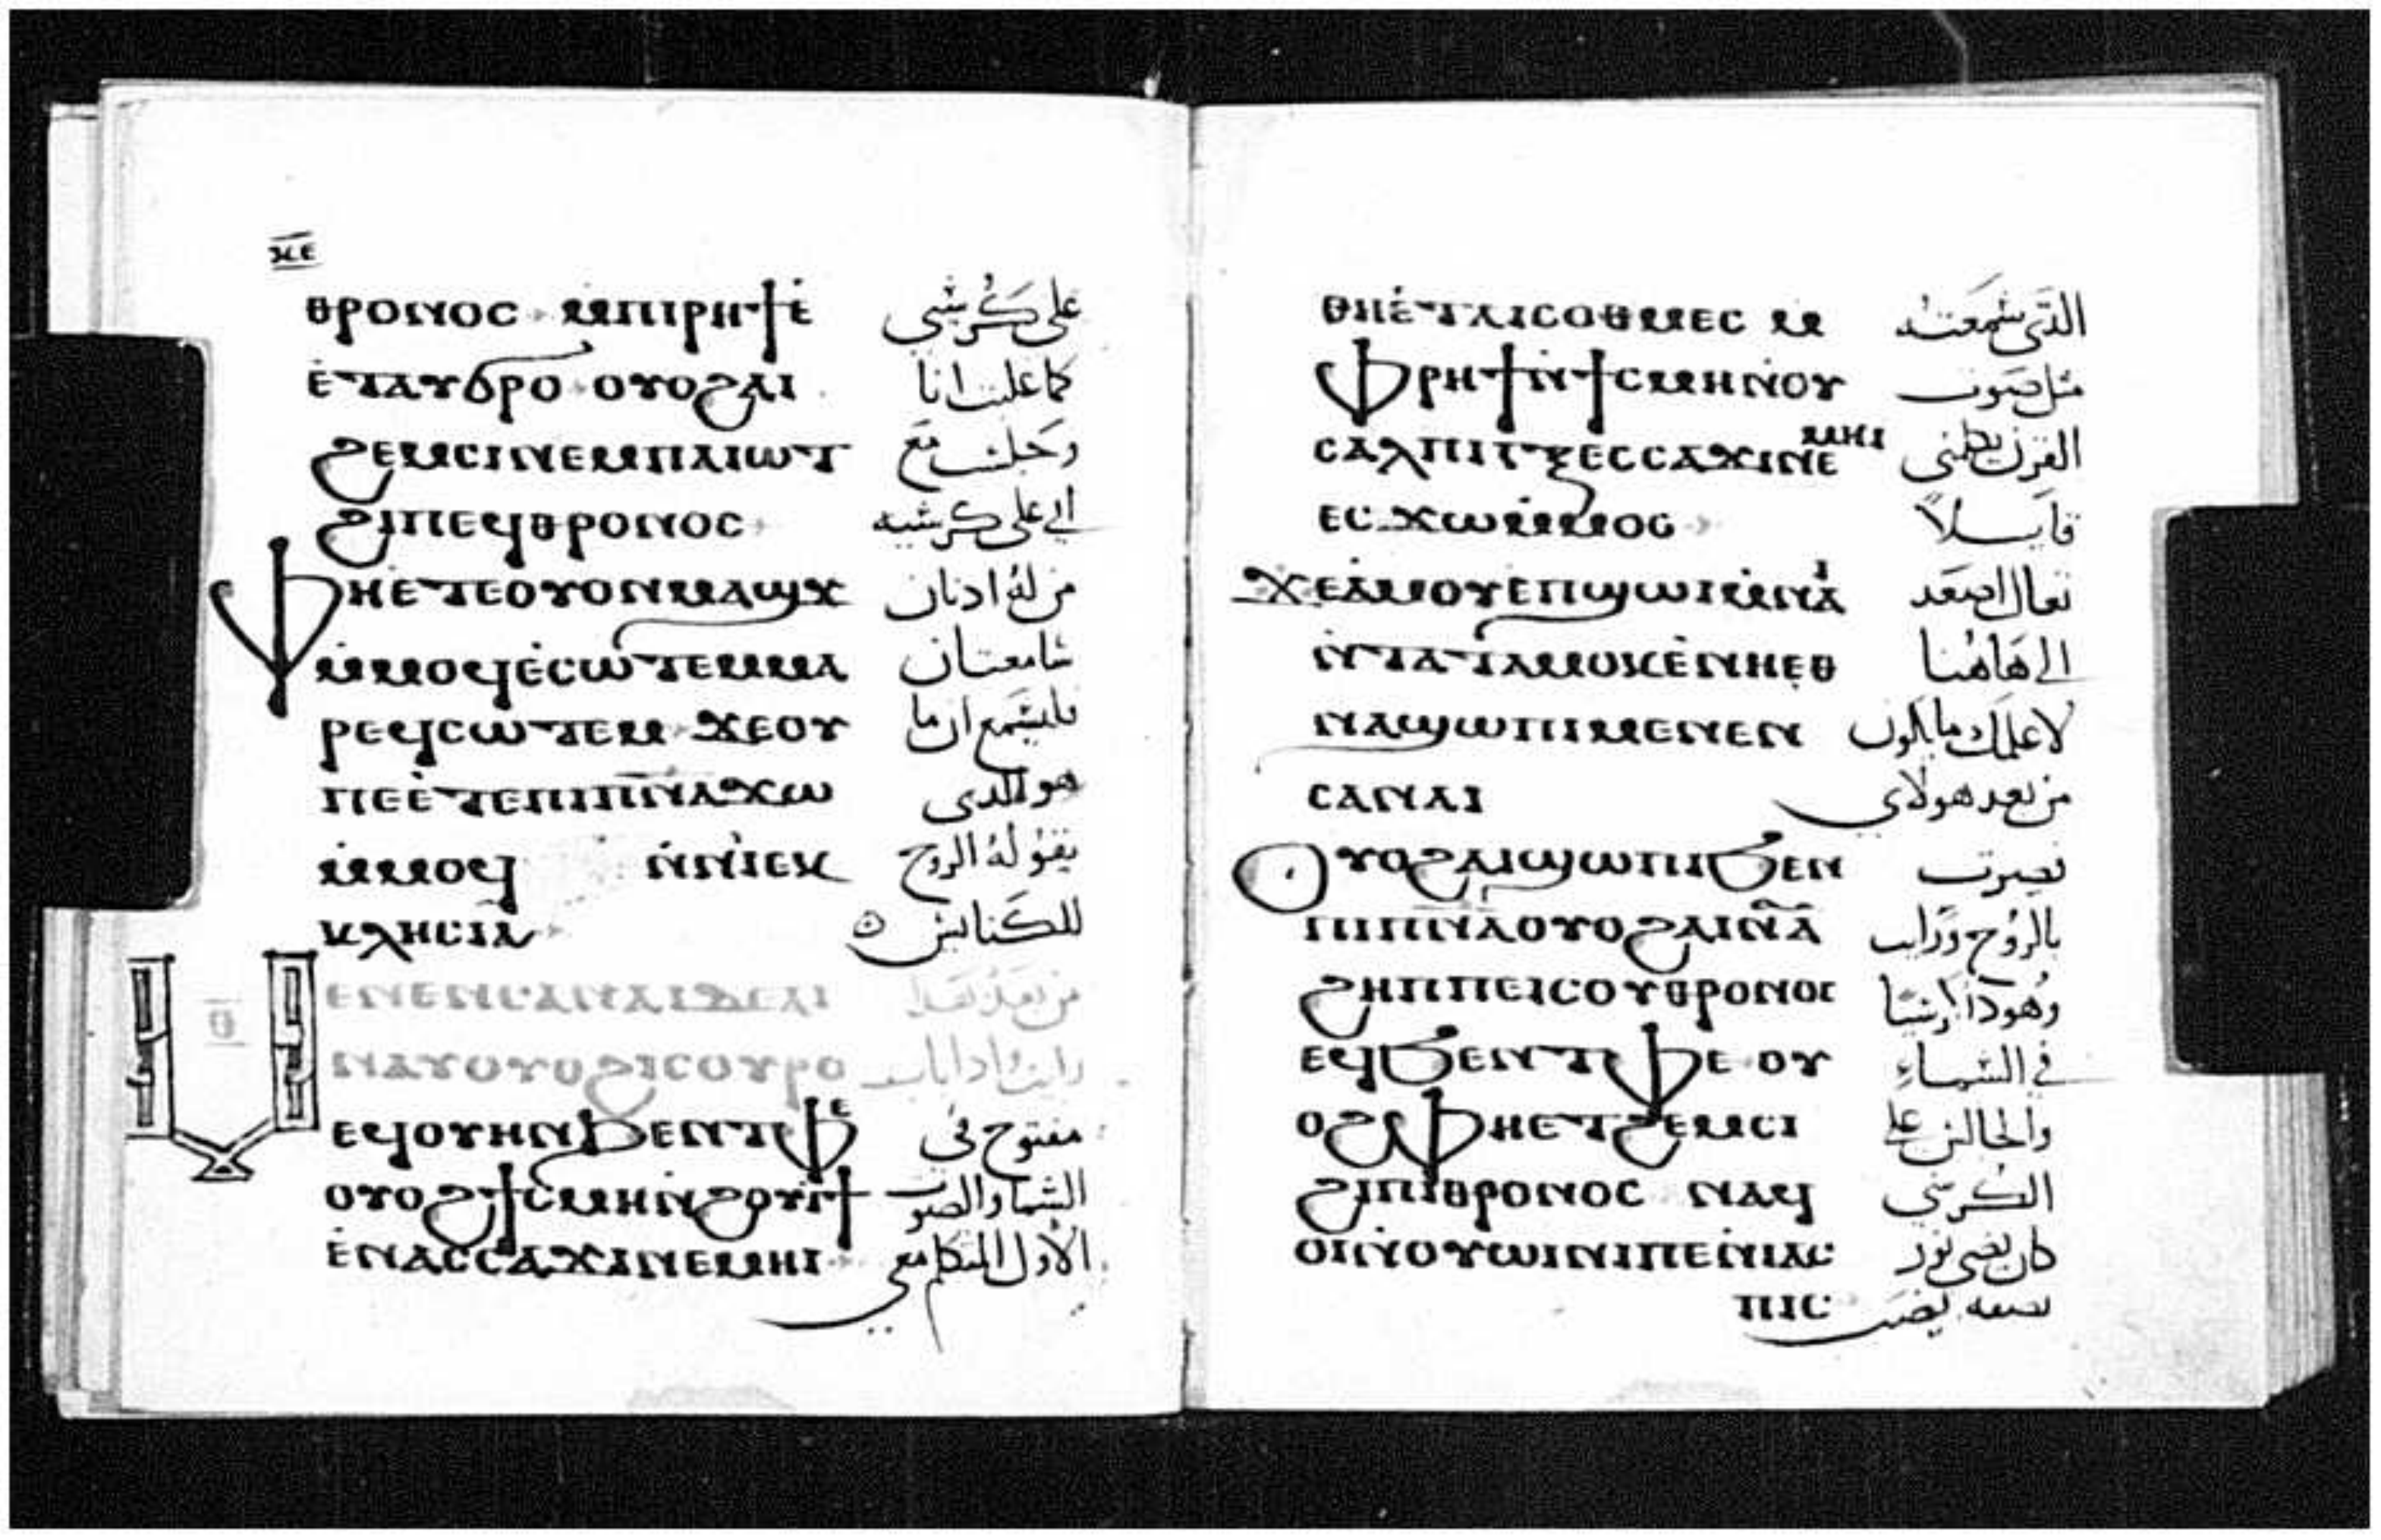 ⲕ̅ⲉ̅
ⲑⲣⲟⲛⲟⲥ ⲙ̇ⲡⲓⲣⲏϯⲉ̇ على كرسي
ⲉ̇ⲧⲁⲩϭⲣⲟ ⲟⲩⲟϩⲁⲓ كما غلبت انا
ϩⲉⲙⲥⲓⲛⲉⲙⲡⲁⲓⲱⲧ وجلست مع
ϩⲓⲡⲉϥⲑⲣⲟⲛⲟⲥ ابي على كرسيه
ⲫⲏⲉ̇ⲧⲉⲟⲩⲟⲛⲙⲁϣϫ من له ادنان
ⲙ̇ⲙⲟϥⲉ̇ⲥⲱⲧⲉⲙⲙⲁ سامعتان
ⲣⲉϥⲥⲱⲧⲉⲙ ϫⲉⲟⲩ فليسمع ان ما
ⲡⲉⲉ̇ⲧⲉⲡⲓⲡ̅ⲛ̅ⲁ̅ϫⲱ هو الدي
ⲙ̇ⲙⲟϥ ⲛ̇ⲛⲓⲉⲕ يقوله الروح
ⲕⲗⲏⲥⲓⲁ للكنايس
ⲑ̅
ⲉⲛⲉⲛⲥⲁⲛⲁⲓⲇⲉⲁⲓ من بعد
ⲛⲁⲩⲟⲩⲟϩⲓⲥⲟⲩⲣⲟ رايت وادا باب
ⲉϥⲟⲩⲏⲛϧⲉⲛⲧⲫⲉ مفتوح في
ⲟⲩⲟϩϯⲥⲙⲏⲛϩⲟⲩⲓϯ السما والصوت
ⲉ̇ⲛⲁⲥⲥⲁϫⲓⲛⲉⲙⲏⲓ الاول المتكلم معي
ⲑⲏⲉ̇ⲧⲁⲓⲥⲟⲑⲙⲉⲥ ⲙ الدي سمعته
ⲫⲣⲏϯⲛ̇ϯⲥⲙⲏⲛⲟⲩ مثل صوت
ⲥⲁⲗⲡⲓⲅⲝⲉⲥⲥⲁϫⲓⲛⲉⲙⲏⲓ القرن يكلمني
ⲉⲥϫⲱⲙ̇ⲙⲟⲥ قايلاً
ϫⲉⲁ̇ⲙⲟⲩⲉ̇ⲡϣⲱⲓⲙ̇ⲛⲁⲓ تعال اصعد
ⲛ̇ⲧⲁⲧⲁⲙⲟⲕⲉ̇ⲛⲏⲉⲑ الى هاهنا
ⲛⲁϣⲱⲡⲓⲙⲉⲛⲉⲛ لاعلمك ما يكون
ⲥⲁⲛⲁⲓ من بعد هولاي
ⲟⲩⲟϩⲁⲓϣⲱⲡⲓϧⲉⲛ فصرت
ⲡⲓⲡ̅ⲛ̅ⲁ̅ⲟⲩⲟϩⲁⲓⲛⲁ بالروح ورايت
ϩⲏⲡⲡⲉⲓⲥⲟⲩⲑⲣⲟⲛⲟⲥ وهوذا
ⲉϥϧⲉⲛⲧⲫⲉ ⲟⲩ في السماء
ⲟϩⲫⲏⲉⲧϩⲉⲙⲥⲓ والجالس على
ϩⲓⲡⲓⲑⲣⲟⲛⲟⲥ ⲛⲁϥ الكرسي
ⲟⲓⲛ̇ⲟⲩⲱⲓⲛⲓⲡⲉⲛⲓⲁⲥ كان نور
ⲡⲓⲥ